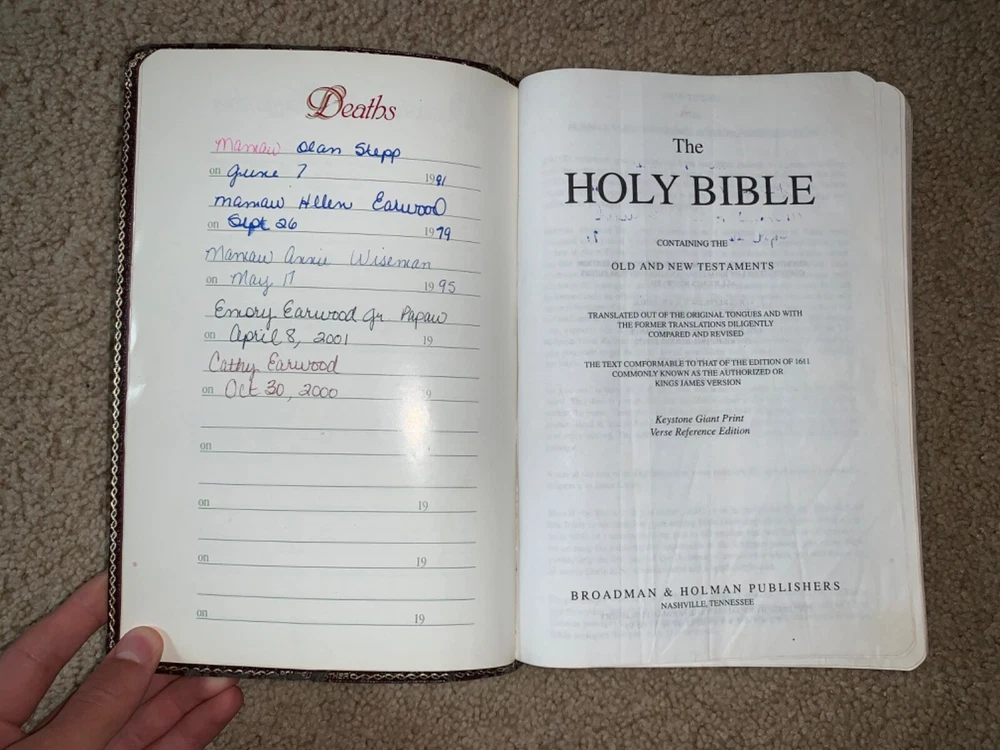 Deaths
Mamaw Olan Stepp
on June 7 1981
Mamaw Hellen Earwood
on Sept 26 1979
Mamaw Annie Wiseman
on May 17 1995
Emory Earwood Jr Papaw
on April 8, 2001 19
Cathy Earwood
on Oct 30, 2000 19
on
on 19
on 19
on 19
The
HOLY BIBLE
CONTAINING THE
OLD AND NEW TESTAMENTS
TRANSLATED OUT OF THE ORIGINAL TONGUES AND WITH
THE FORMER TRANSLATIONS DILIGENTLY
COMPARED AND REVISED
THE TEXT COMFORMABLE TO THAT OF THE EDITION OF 1611
COMMONLY KNOWN AS THE AUTHORIZED OR
KINGS JAMES VERSION
Keystone Giant Print
Verse Reference Edition
BROADMAN & HOLMAN PUBLISHERS
NASHVILLE, TENNESSEE